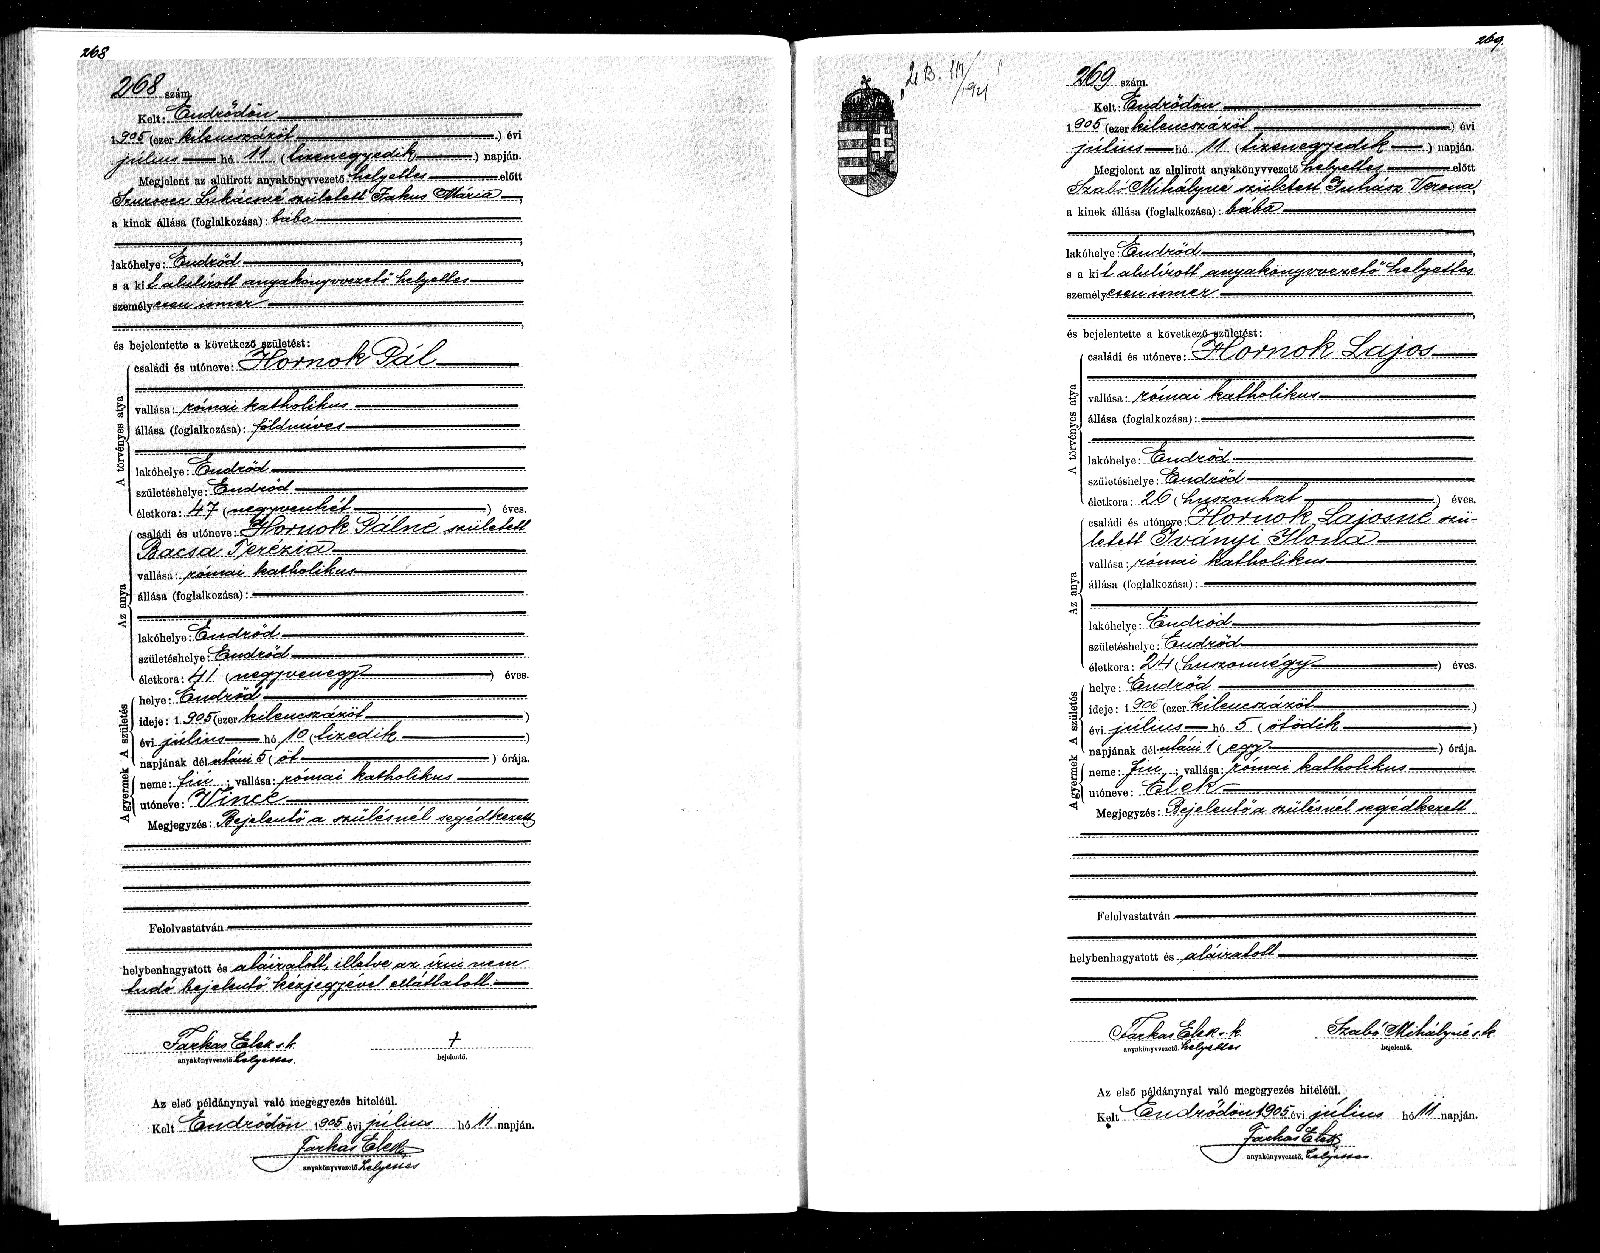 268
268 szám.
Kelt: Endrődön
1905 (ezer kilencszázöt) évi
július hó 11 (tizenegyedik) napján.
Megjelent az alulirott anyakönyvvezető helyettes előtt
Lukácsné született Fakus Mária
a kinek állása (foglalkozása): bába
lakóhelye: Endrőd
s a kit alulírott anyakönyvvezető helyettes
személyesen ismer
és bejelentette a következő születést:
A törvényes atya
családi és utóneve: Hornok Pál
vallása: római katholikus
állása (foglalkozása): földmíves
lakóhelye: Endrőd
születéshelye: Endrőd
életkora: 47 (negyvenhét) éves.
Az anya
családi és utóneve: Hornok Pálné született
Bacsa Terézia
vallása: római katholikus
állása (foglalkozása):
lakóhelye: Endrőd
születéshelye: Endrőd
életkora: 41 (negyvenegy) éves.
A születés
helye: Endrőd
ideje: 1905 (ezer kilencszázöt)
évi július hó 10 (tizedik)
napjának dél utáni 5 (öt) órája.
A gyermek
neme: fiú; vallása: római katholikus
utóneve: Vince
Megjegyzés: Bejelentő a szülésnél segédkezett
Felolvastatván
helybenhagyatott és aláiratott, illetve az írni nem
tudó bejelentő kézjegyével elláttatott
Farkas Elek s. k. +
anyakönyvvezető helyettes bejelentő.
Az első példánynyal való megegyezés hiteléül.
Kelt Endrődön 1905 évi július hó 11 napján.
Farkas Elek
anyakönyvvezető helyettes
269.
269 szám.
Kelt: Endrődön
1905 (ezer kilencszázöt) évi
július hó 11 (tizenegyedik) napján.
Megjelent az alulirott anyakönyvvezető helyettes előtt
Szabó Mihályné született Juhász Verona,
a kinek állása (foglalkozása): bába
lakóhelye: Endrőd
s a kit alulírott anyakönyvvezető helyettes
személyesen ismer
és bejelentette a következő születést:
A törvényes atya
családi és utóneve: Hornok Lajos
vallása: római katholikus
állása (foglalkozása):
lakóhelye: Endrőd
születéshelye: Endrőd
életkora: 26 (huszonhat) éves.
Az anya
családi és utóneve: Hornok Lajosné szü-
letett Iványi Ilona
vallása: római katholikus
állása (foglalkozása):
lakóhelye: Endrőd
születéshelye: Endrőd
életkora: 24 (huszonnégy) éves.
A születés
helye: Endrőd
ideje: 1905 (ezer kilencszázöt)
évi július hó 5 (ötödik)
napjának dél utáni 1 (egy) órája.
A gyermek
neme: fiú; vallása: római katholikus
utóneve: Elek
Megjegyzés: Bejelentő a szülésnél segédkezett
Felolvastatván
helybenhagyatott és aláiratott
Farkas Elek s. k. Szabó Mihályné s. k.
anyakönyvvezető helyettes bejelentő.
Az első példánynyal való megegyezés hiteléül.
Kelt Endrődön 1905 évi július hó 11 napján.
Farkas Elek
anyakönyvvezető helyettes